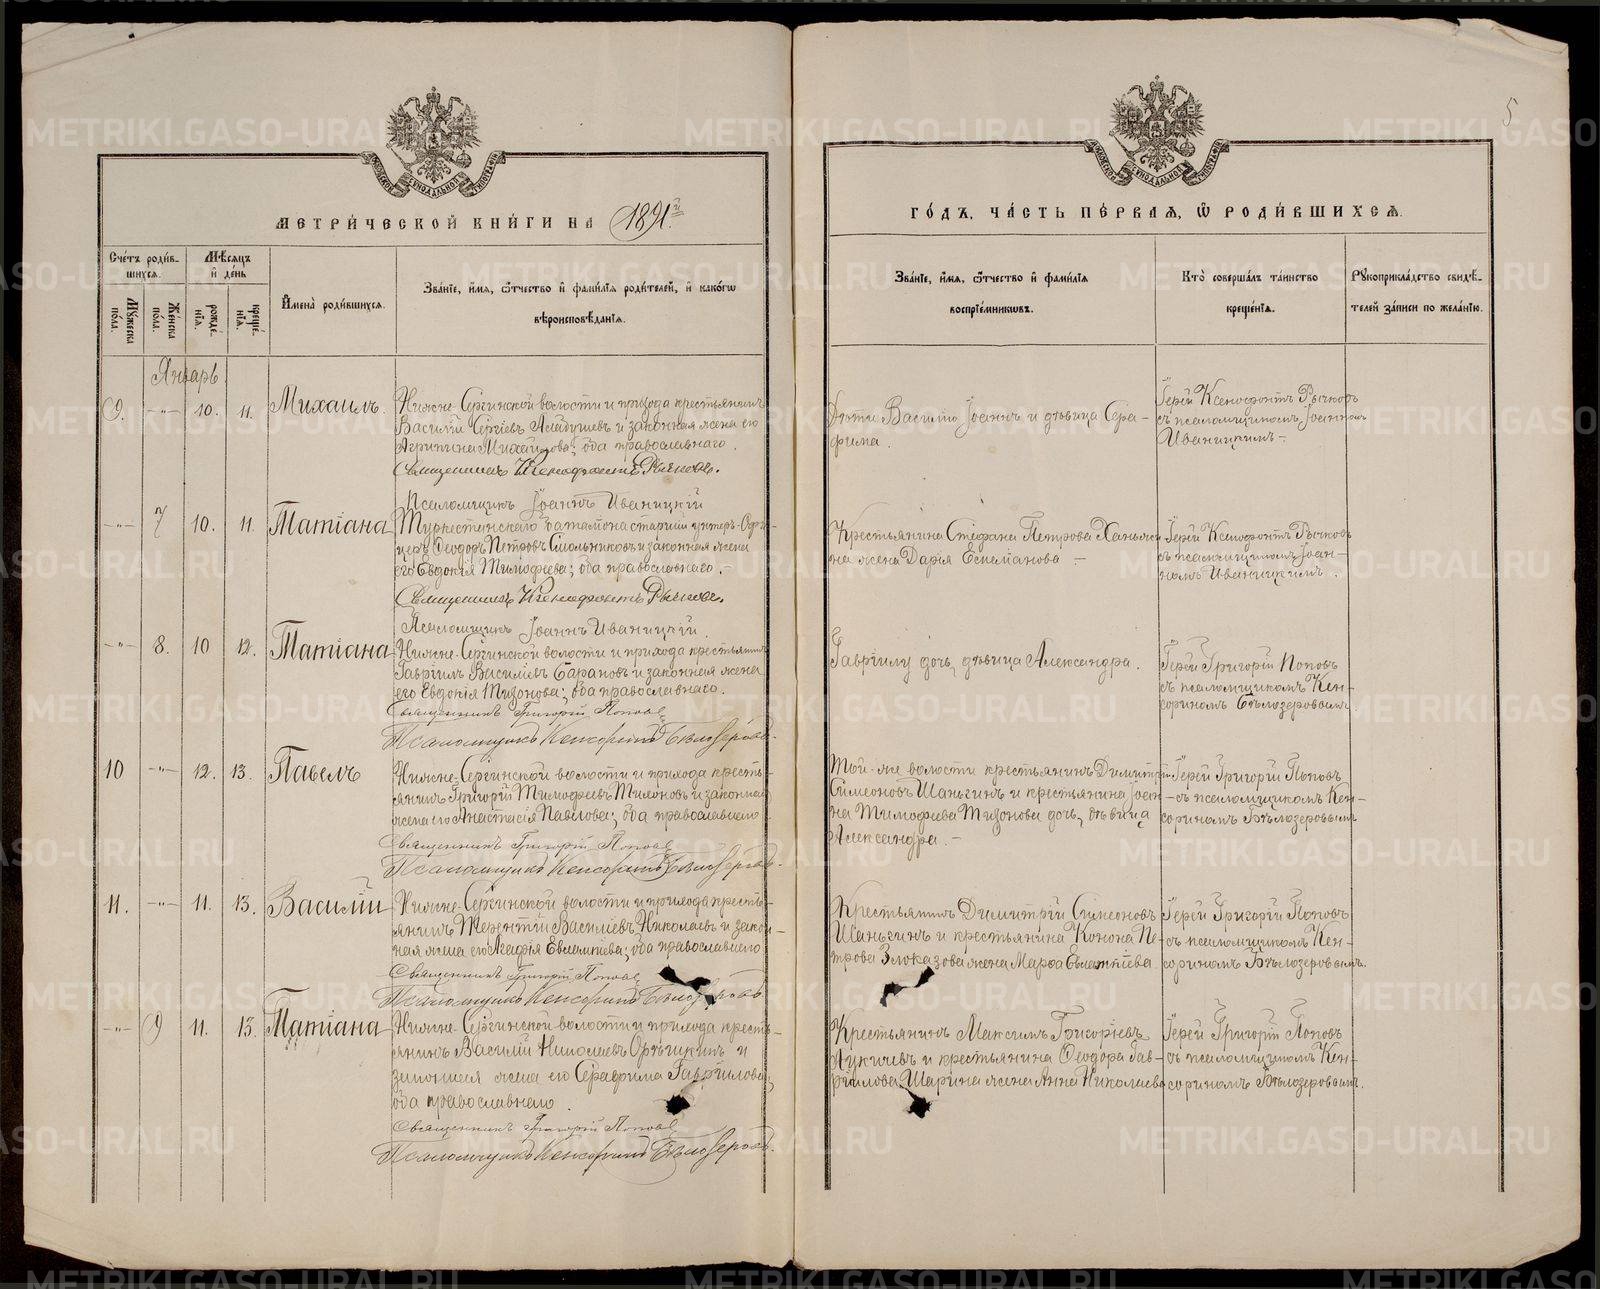 МЕТРИ́ЧЕСКОЙ КНИ́ГИ НА 1891.й
Сче́тъ роди́в-
шихся.
Мѣ́сяцъ
и҆ де́нь
Мꙋ́жеска по́ла.
Же́нска по́ла.
рожде́нїя.
креще́нїя.
И҆мена̀ роди́вшихся.
Зва́нїе, и҆́мя, ѻ҆́тчество и҆ фами́лїя роди́телей, и҆ како́гѡ
вѣроисповѣ́данїя.
Январь
9. —"— 10. 11. Михаилъ.
Нижне-Сергинской волости и прихода крестьянинъ
Василій Сергіевъ и законная жена его
Агрипина Михайлова; оба православнаго.
Священникъ Ксенофонтъ Рычковъ.
Псаломщикъ Іоаннъ Иваницкій
—"— 7 10. 11. Татіана
Туркестанскаго баталіона старшій унтеръ-Офи-
церъ Ѳеодоръ Петровъ Смольниковъ и законная жена
его Евдокія Тимофеева; оба православнаго. —
Священникъ Ксенофонтъ Рычковъ.
Псаломщикъ Іоаннъ Иваницкій.
—"— 8. 10 12. Татіана
Нижне-Сергинской волости и прихода крестьянинъ
Гавріилъ Василіевъ Барановъ и законная жена
его Евдокія Тихонова; оба православнаго.
Священникъ Григорій Поповъ
Псаломщикъ Кенсоринъ Бѣлозеровъ.
10 —"— 12. 13. Павелъ
Нижне-Сергинской волости и прихода кресть-
янинъ Григорій Тимофеевъ и законная
жена его Анастасія Павлова; оба православнаго
Священникъ Григорій Поповъ
Псаломщикъ Кенсоринъ Бѣлозеровъ.
11. —"— 11. 13. Василій
Нижне-Сергинской волости и прихода кресть-
янинъ Василіевъ Николаевъ и закон-
ная жена его Евлампіева; оба православнаго
Священникъ Григорій Поповъ
Псаломщикъ Кенсоринъ Бѣлозеровъ
—"— 9 11. 13. Татіана
Нижне-Сергинской волости и прихода кресть-
янинъ Василій Николаевъ и
законная жена его Серафима Гавріилова;
оба православнаго.
Священникъ Григорій Поповъ
Псаломщикъ Кенсоринъ Бѣлозеровъ.
5
ГО́ДЪ, ЧА́СТЬ ПЕ́РВАЯ, Ѡ҆ РОДИ́ВШИХСЯ.
Зва́нїе, и҆́мя, ѻ҆́тчество и҆ фами́лїя
воспрїе́мниковъ.
Кто̀ соверша́лъ та́инство
креще́нїя.
Рꙋкоприкла́дство свидѣ́-
телей за́писи по жела́нїю.
Дѣти Василію Іоаннъ и дѣвица Сера-
фима.
Іерей Ксенофонтъ Рычковъ
съ псаломщикомъ Іоанномъ
Иваницкимъ —
Крестьянина Стефана Петрова
на жена Дарія —
Іерей Ксенофонтъ Рычковъ
съ псаломщикомъ Іоан-
номъ Иваницкимъ.
Гавріилу дочь, дѣвица Александра.
Іерей Григорій Поповъ
съ псаломщикомъ Кен-
сориномъ Бѣлозеровымъ
Той-же волости крестьянинъ Димитрій
Симеоновъ Шаньгинъ и крестьянина Іоан-
на Тимофеева Тихонова дочь, дѣвица
Александра. —
Іерей Григорій Поповъ
съ псаломщикомъ Кен-
сориномъ Бѣлозеровымъ
Крестьянинъ Димитрій Симеоновъ
Шаньгинъ и крестьянина Конона Пе-
трова Злоказова жена Марѳа Евлампіева
Іерей Григорій Поповъ
съ псаломщикомъ Кен-
сориномъ Бѣлозеровымъ.
Крестьянинъ Максимъ Григоріевъ
Лукичевъ и крестьянина Ѳеодора Гав-
рилова Шарина жена Анна Николаева
Іерей Григорій Поповъ
съ псаломщикомъ Кен-
сориномъ Бѣлозеровымъ.
METRIKI.GASO-URAL.RU